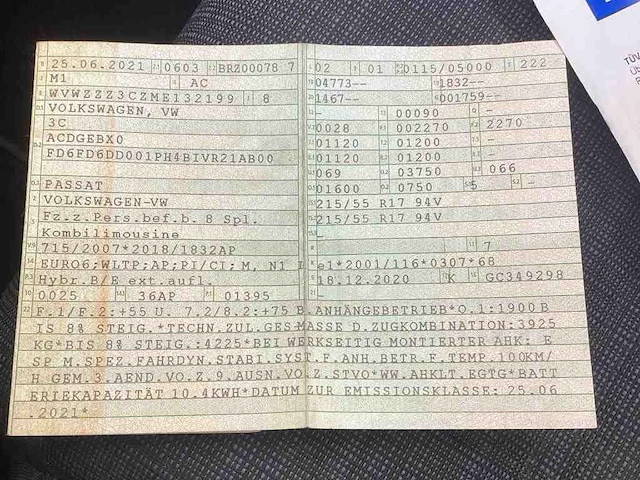 25.06.2021 0603 BRZ00078 7
M1 AC
WVWZZZ3CZME132199 8
VOLKSWAGEN, VW
3C
ACDGEBX0
FD6FD6DD001PH4BIVR21AB00
PASSAT
VOLKSWAGEN-VW
Fz.z.Pers.bef.b. 8 Spl.
Kombilimousine
715/2007*2018/1832AP
EURO6;WLTP;AP;PI/CI; M, N1 I
Hybr.B/E ext.aufl.
0025 36AP 01395
02 01 0115/05000 222
04773-- 1832--
1467-- 001759--
- 00090 -
0028 002270 2270
01120 01200 -
01120 01200 -
069 03750 066
01600 0750 5 -
215/55 R17 94V
215/55 R17 94V
-
7
e1*2001/116*0307*68
18.12.2020 K GC349298
-
F.1/F.2:+55 U. 7.2/8.2:+75 B.ANHÄNGEBETRIEB*O.1:1900 B
IS 8% STEIG.*TECHN.ZUL.GES.MASSE D.ZUGKOMBINATION:3925
KG*BIS 8% STEIG.:4225*BEI WERKSEITIG MONTIERTER AHK: E
SP M.SPEZ.FAHRDYN.STABI.SYST.F.ANH.BETR.F.TEMP.100KM/
H GEM.3.AEND.VO.Z.9.AUSN.VO.Z.STVO*WW.AHKLT.EGTG*BATT
ERIEKAPAZITÄT 10.4KWH*DATUM ZUR EMISSIONSKLASSE: 25.06
.2021*
TÜV